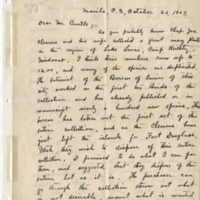 Manila, P. I., October 21, 1907.
Dear Mr.
As you probably know Chap. Jos.
Clemens and his wife collected a great many plants
in the region of Lake Lanao, Camp Keithley,
Mindanao. I think their numbers run up to
1200, and many of the species are duplicated.
The botanist of the Bureau of Science of this
city worked on the first two thirds of the
collection, and has already published or in
manuscript nearly a hundred new species. The
has taken out the first set of the
entire collection, and as the Clemens have
just left the islands for Fort Douglass,
Utah, they wish to dispose of their entire
collection. I promised to do what I can for
them, and suggested that they dispose of the
entire lot as it is. The purchaser can
go through this collection, throw out what
is not desirable, mount what is wanted